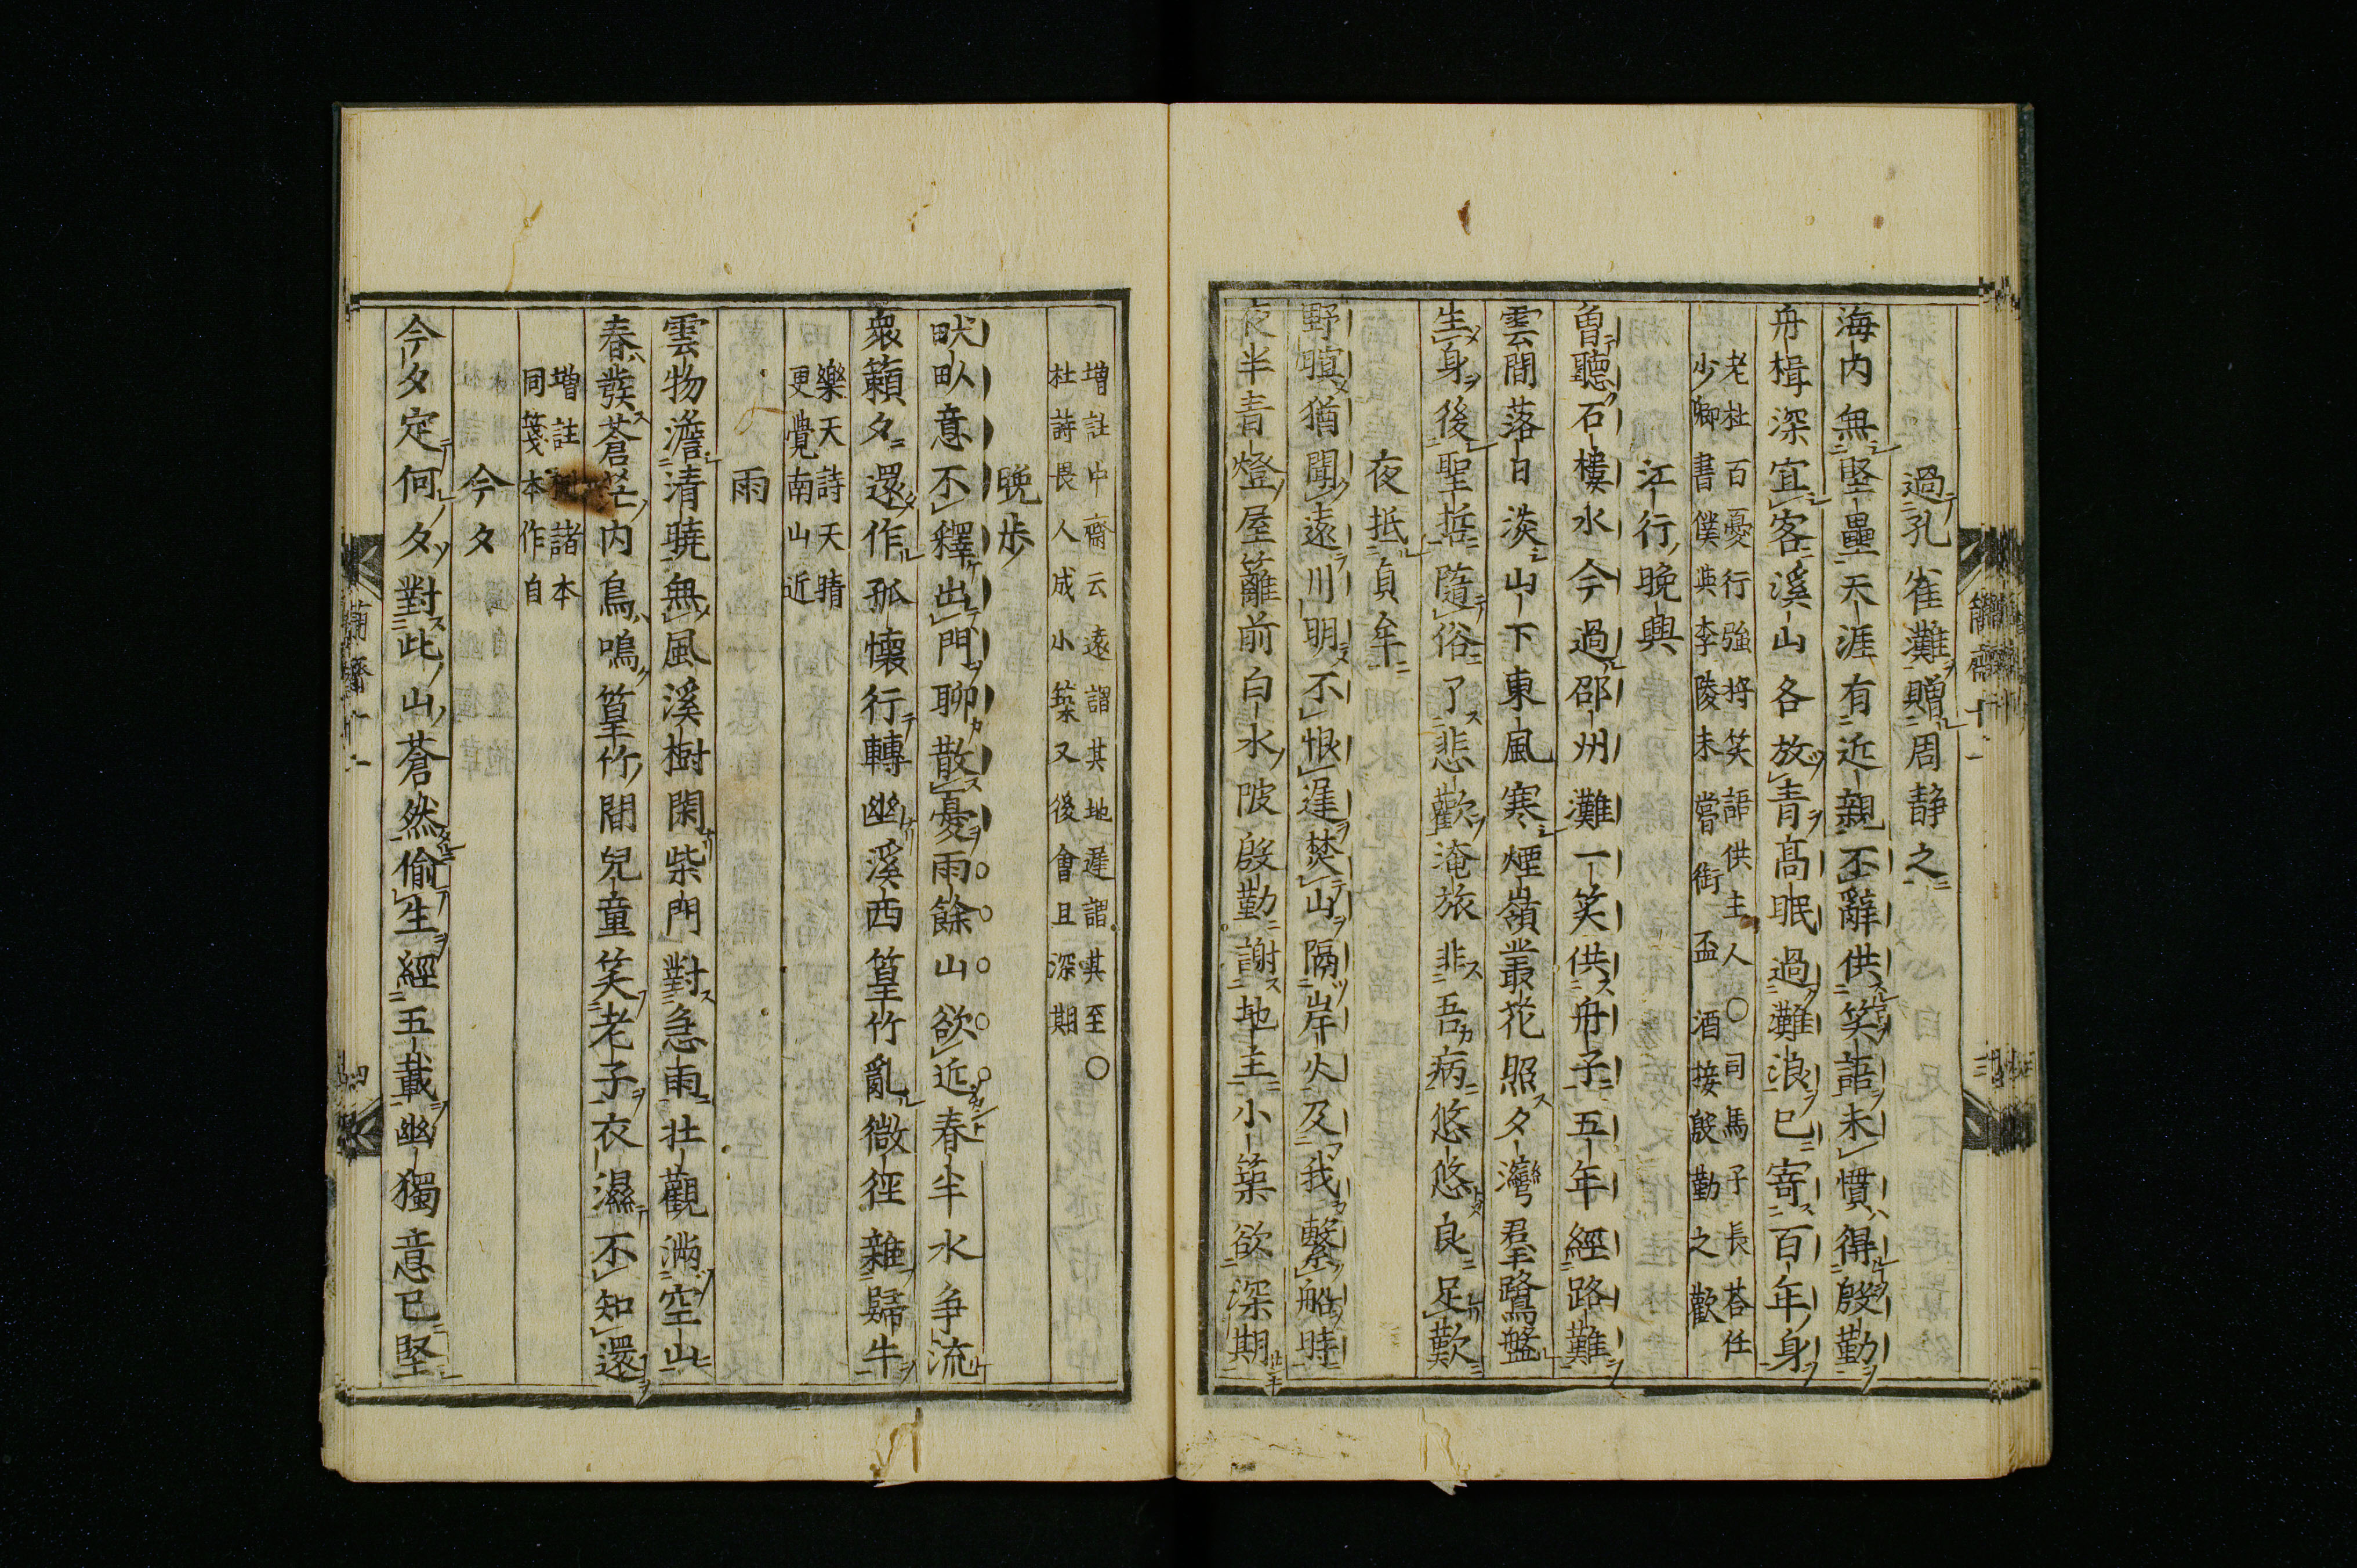 過孔雀灘贈周靜之
海内無堅壘天涯有近親不辭供笑語未慣得殷勤
舟楫深宜客溪山各放青高眠過灘浪已寄百年身
老杜百憂行強將笑語供主人○司馬子長荅任
少卿書僕與李陵未嘗銜盃酒接殷勤之歡
江行晚興
曾聽石樓水今過邵州灘一笑供舟子五年經路難
雲間落日淡山下東風寒煙嶺叢花照夕灣羣鷺盤
生身後聖哲隨俗了悲歡淹旅非吾病悠悠良足歎
夜抵貞牟
野暝猶聞遠川明不恨遲焚山隔岸火及我繫船時
夜半青燈屋籬前白水陂殷勤謝地主小築欲深期
増註中齋云遠謂其地遲謂其至○
杜詩畏人成小築又後會且深期
晚步
畎畒意不釋出門聊散憂雨餘山欲近春半水争流
衆籟夕還作孤懷行轉幽溪西篁竹亂微徑雜歸牛
樂天詩天晴
更覺南山近
雨
雲物澹清曉無風溪樹閑柴門對急雨壯觀滿空山
春發蒼茫内鳥鳴篁竹間兒童笑老子衣濕不知還
増註諸本
同箋本作自
今夕
今夕定何夕對此山蒼然偷生經五載幽獨意已堅